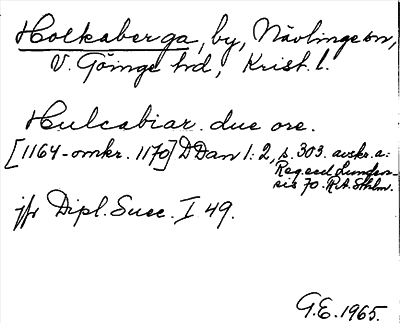 Holkaberga, by, Nävlinge sn,
V. Göinge hd, Krist. l.
Hulcabiar. due ore.
[1164-omkr. 1170] DDan 1:2, s. 303. avskr. a:
Reg. eccl. Lunden-
sis 70. RA Sthlm.
jfr Dipl. Suec. I 49.
G.E. 1965.